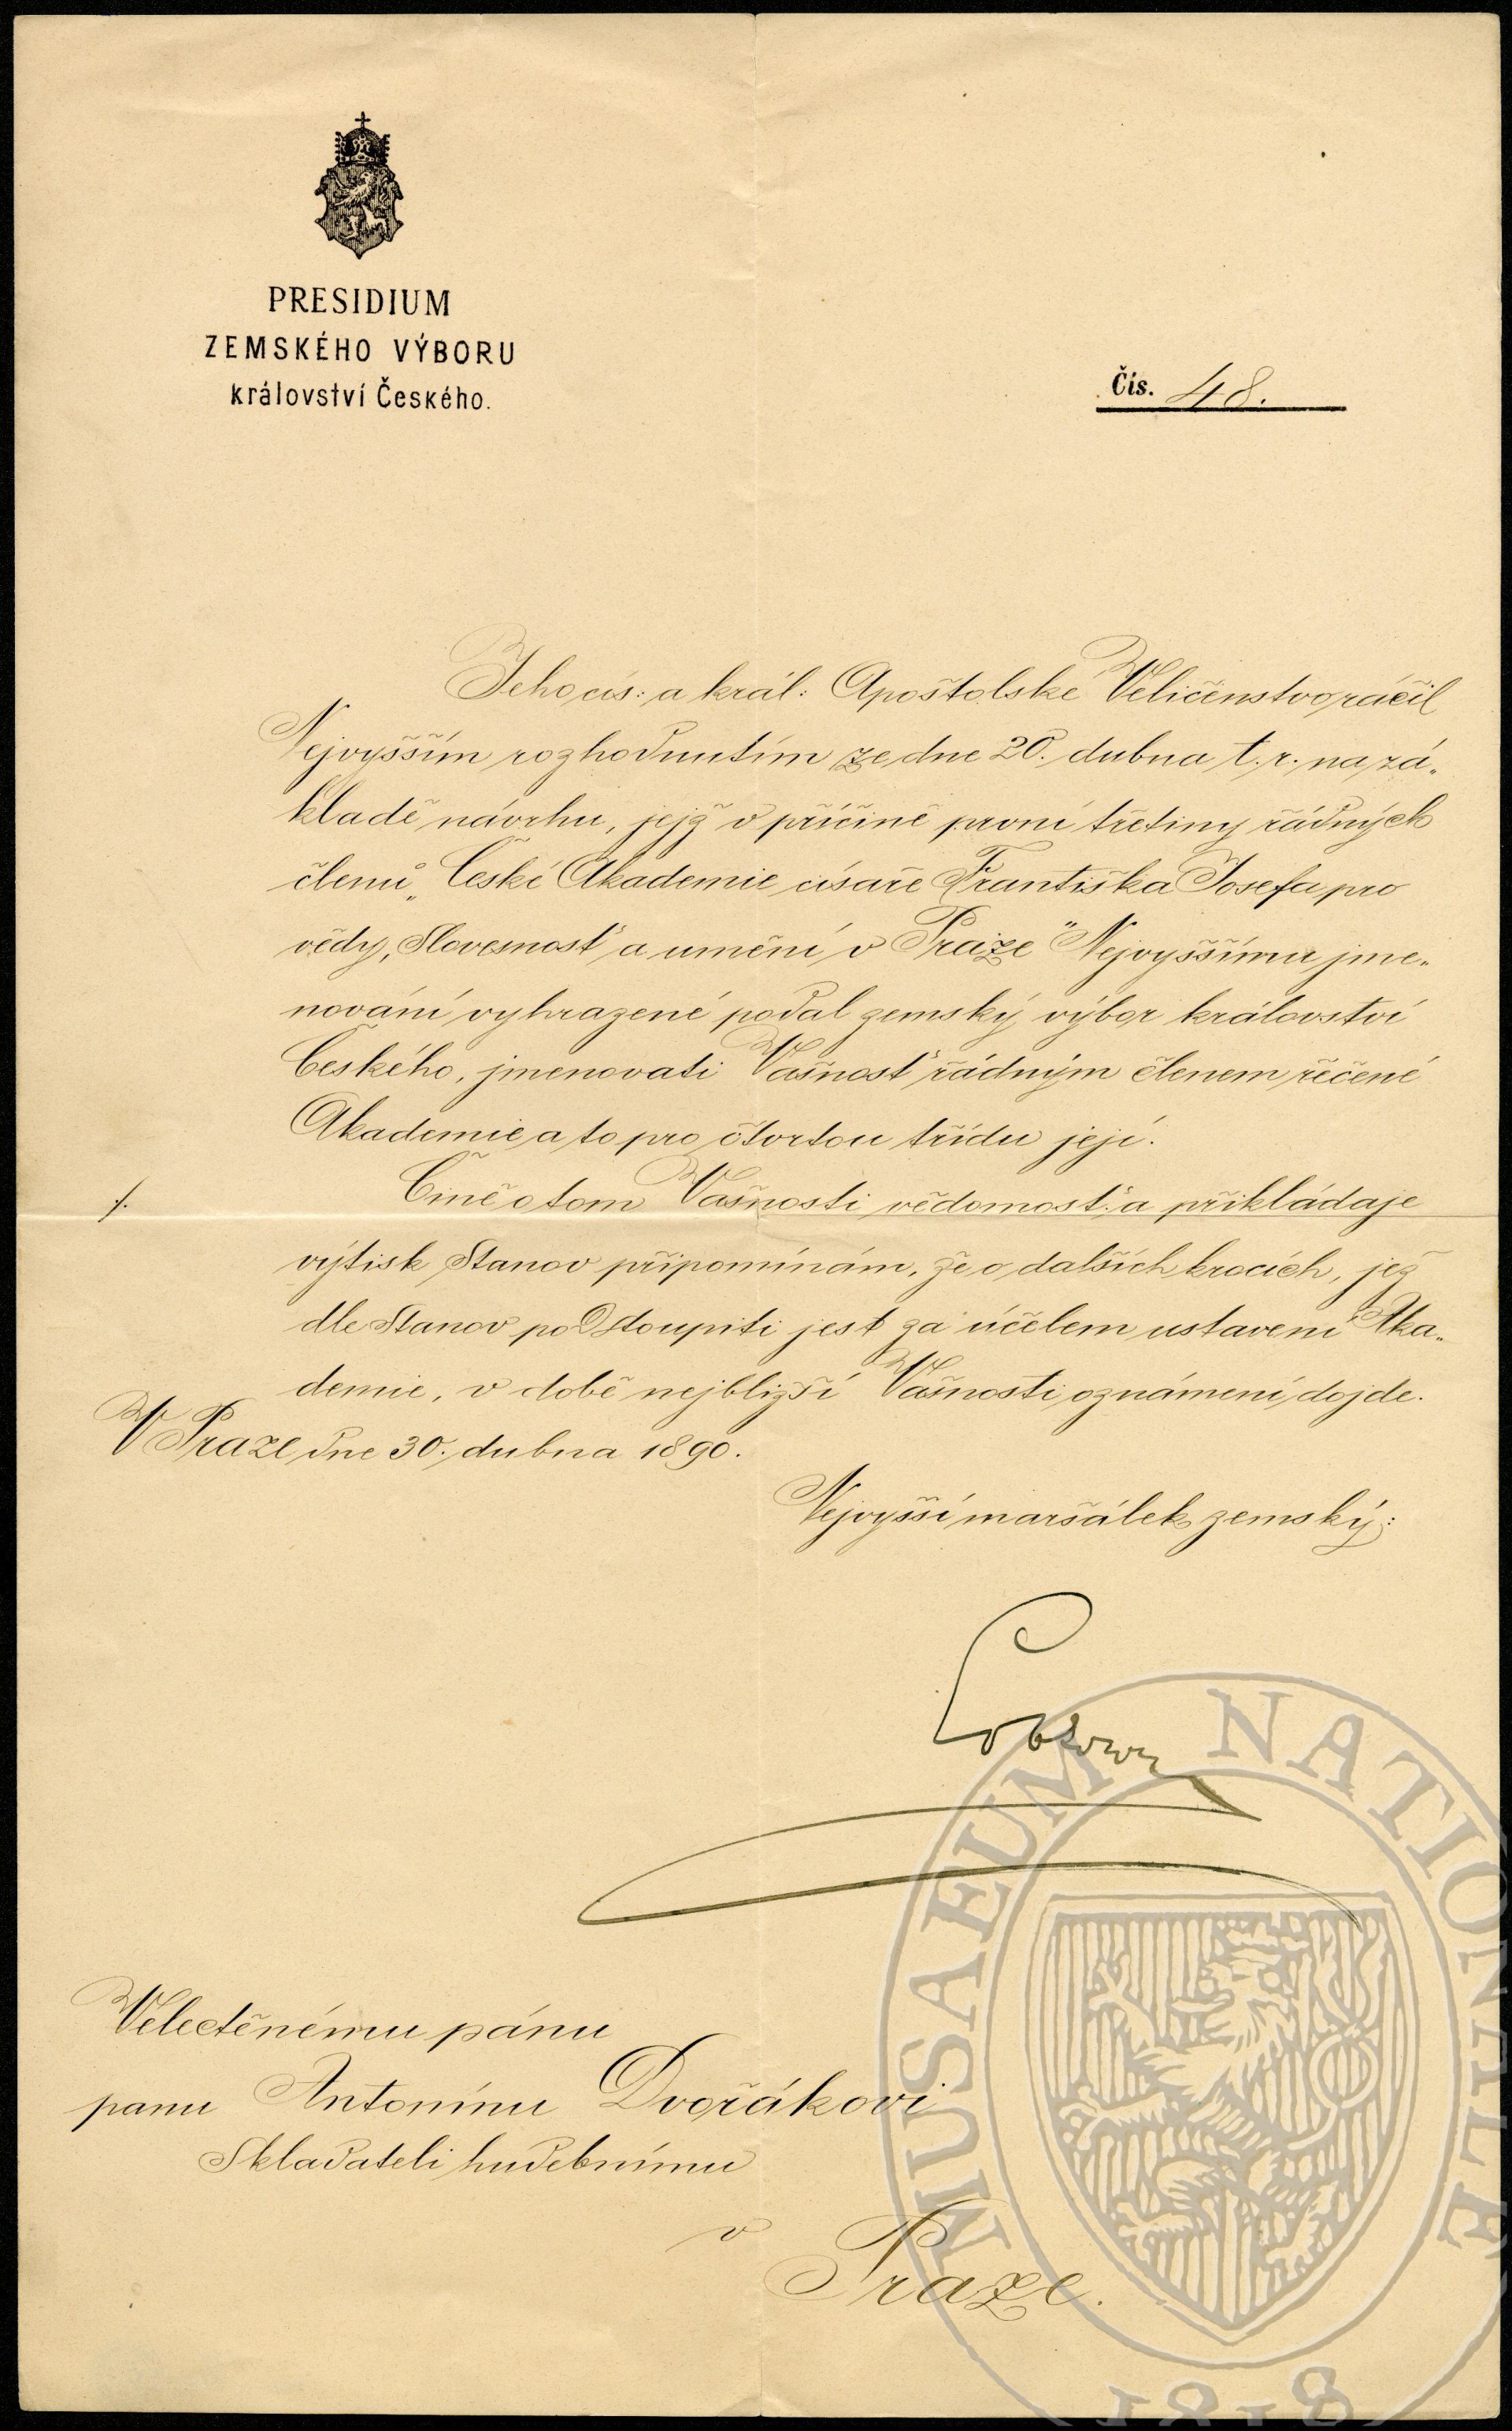 PRESIDIUM
ZEMSKÉHO VÝBORU
království Českého.
Čís. 48.
Jeho cís: a král: Apoštolské Veličenstvo ráčil
Nejvyšším rozhodnutím ze dne 20. dubna t. r. na zá„
kladě návrhu, jejž v příčině první třetiny řádných
členů „České Akademie císaře Františka Josefa pro
vědy, Slovesnosť a umění v Praze" Nejvyššímu jme„
nování vyhrazené podal zemský výbor království
Českého, jmenovati Vašnosť řádným členem řečené
Akademie a to pro čtvrtou třídu její.
Čině o tom Vašnosti vědomosť a přikládaje
./.
výtisk Stanov připomínám, že o dalších krocích, jež
dle Stanov podstoupiti jest za účelem ustavení Aka„
demie, v době nejbližší Vašnosti oznámení dojde.
V Praze dne 30. dubna 1890.
Nejvyšší maršálek zemský:
Lobkowicz
Velectěnému pánu
panu Antonínu Dvořákovi
Skladateli hudebnímu
v Praze.
MUSAEUM NATIONALE
1818